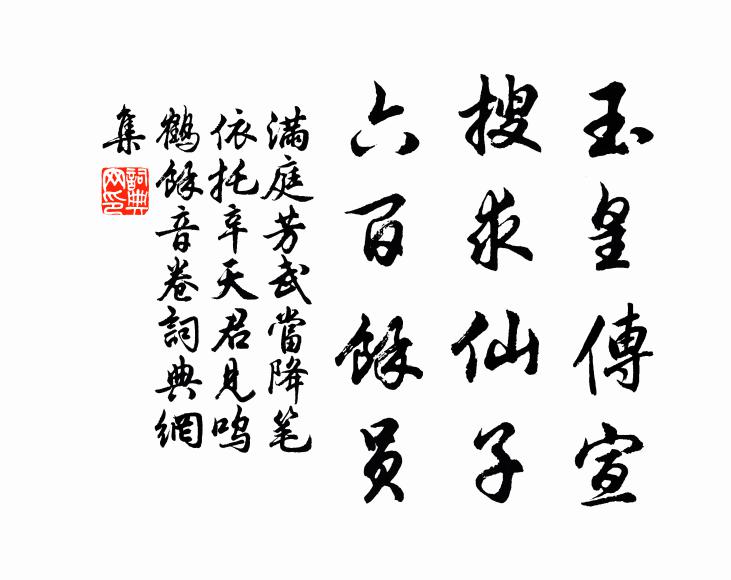 玉皇傳宣
搜求仙子
六百餘員
滿庭芳武當降笔
依托辛天君見鸣
鶴餘音卷詞典網
集
詞典
网印